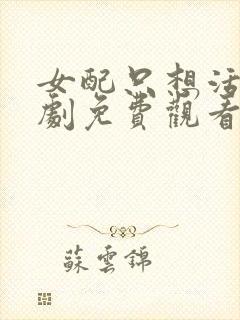 女配只想活
劇免費觀看
蘇雲錦